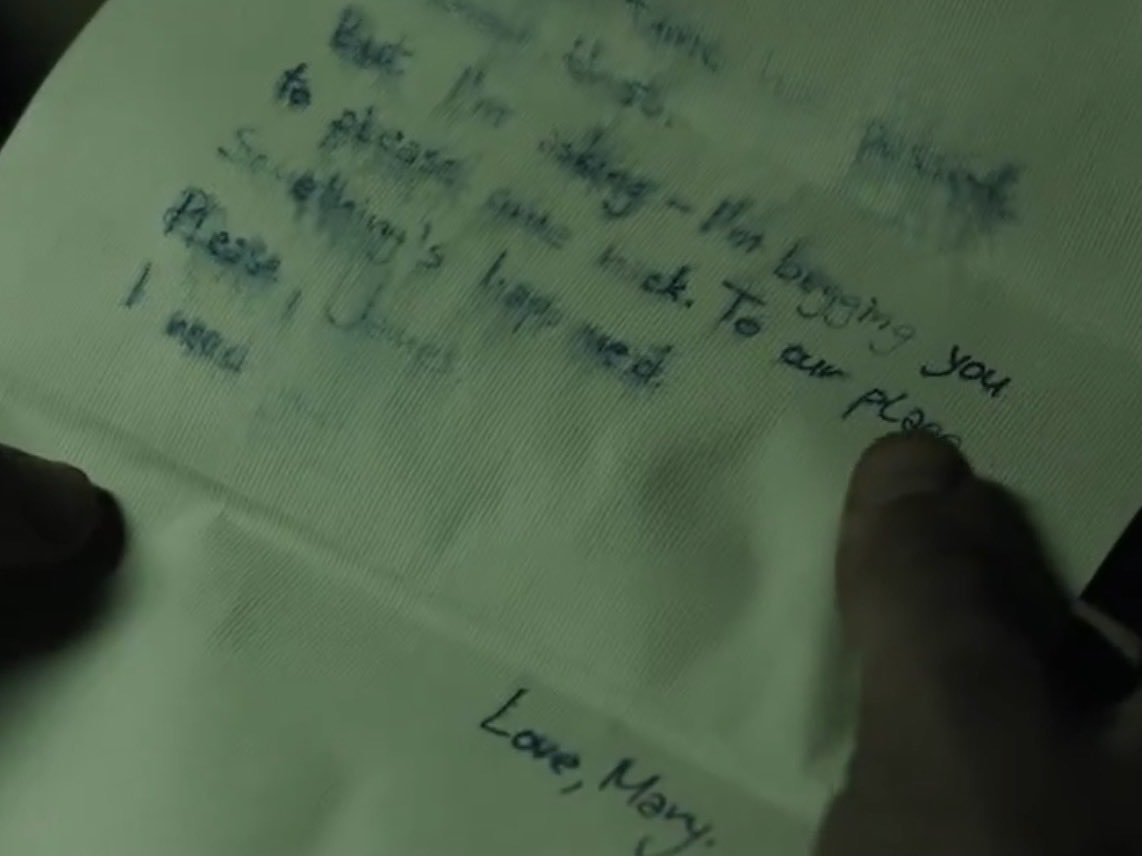 this.
But I'm asking – I'm begging you
to please come back. To our place
Something's happened.
Please, James.
I need
Love, Mary.